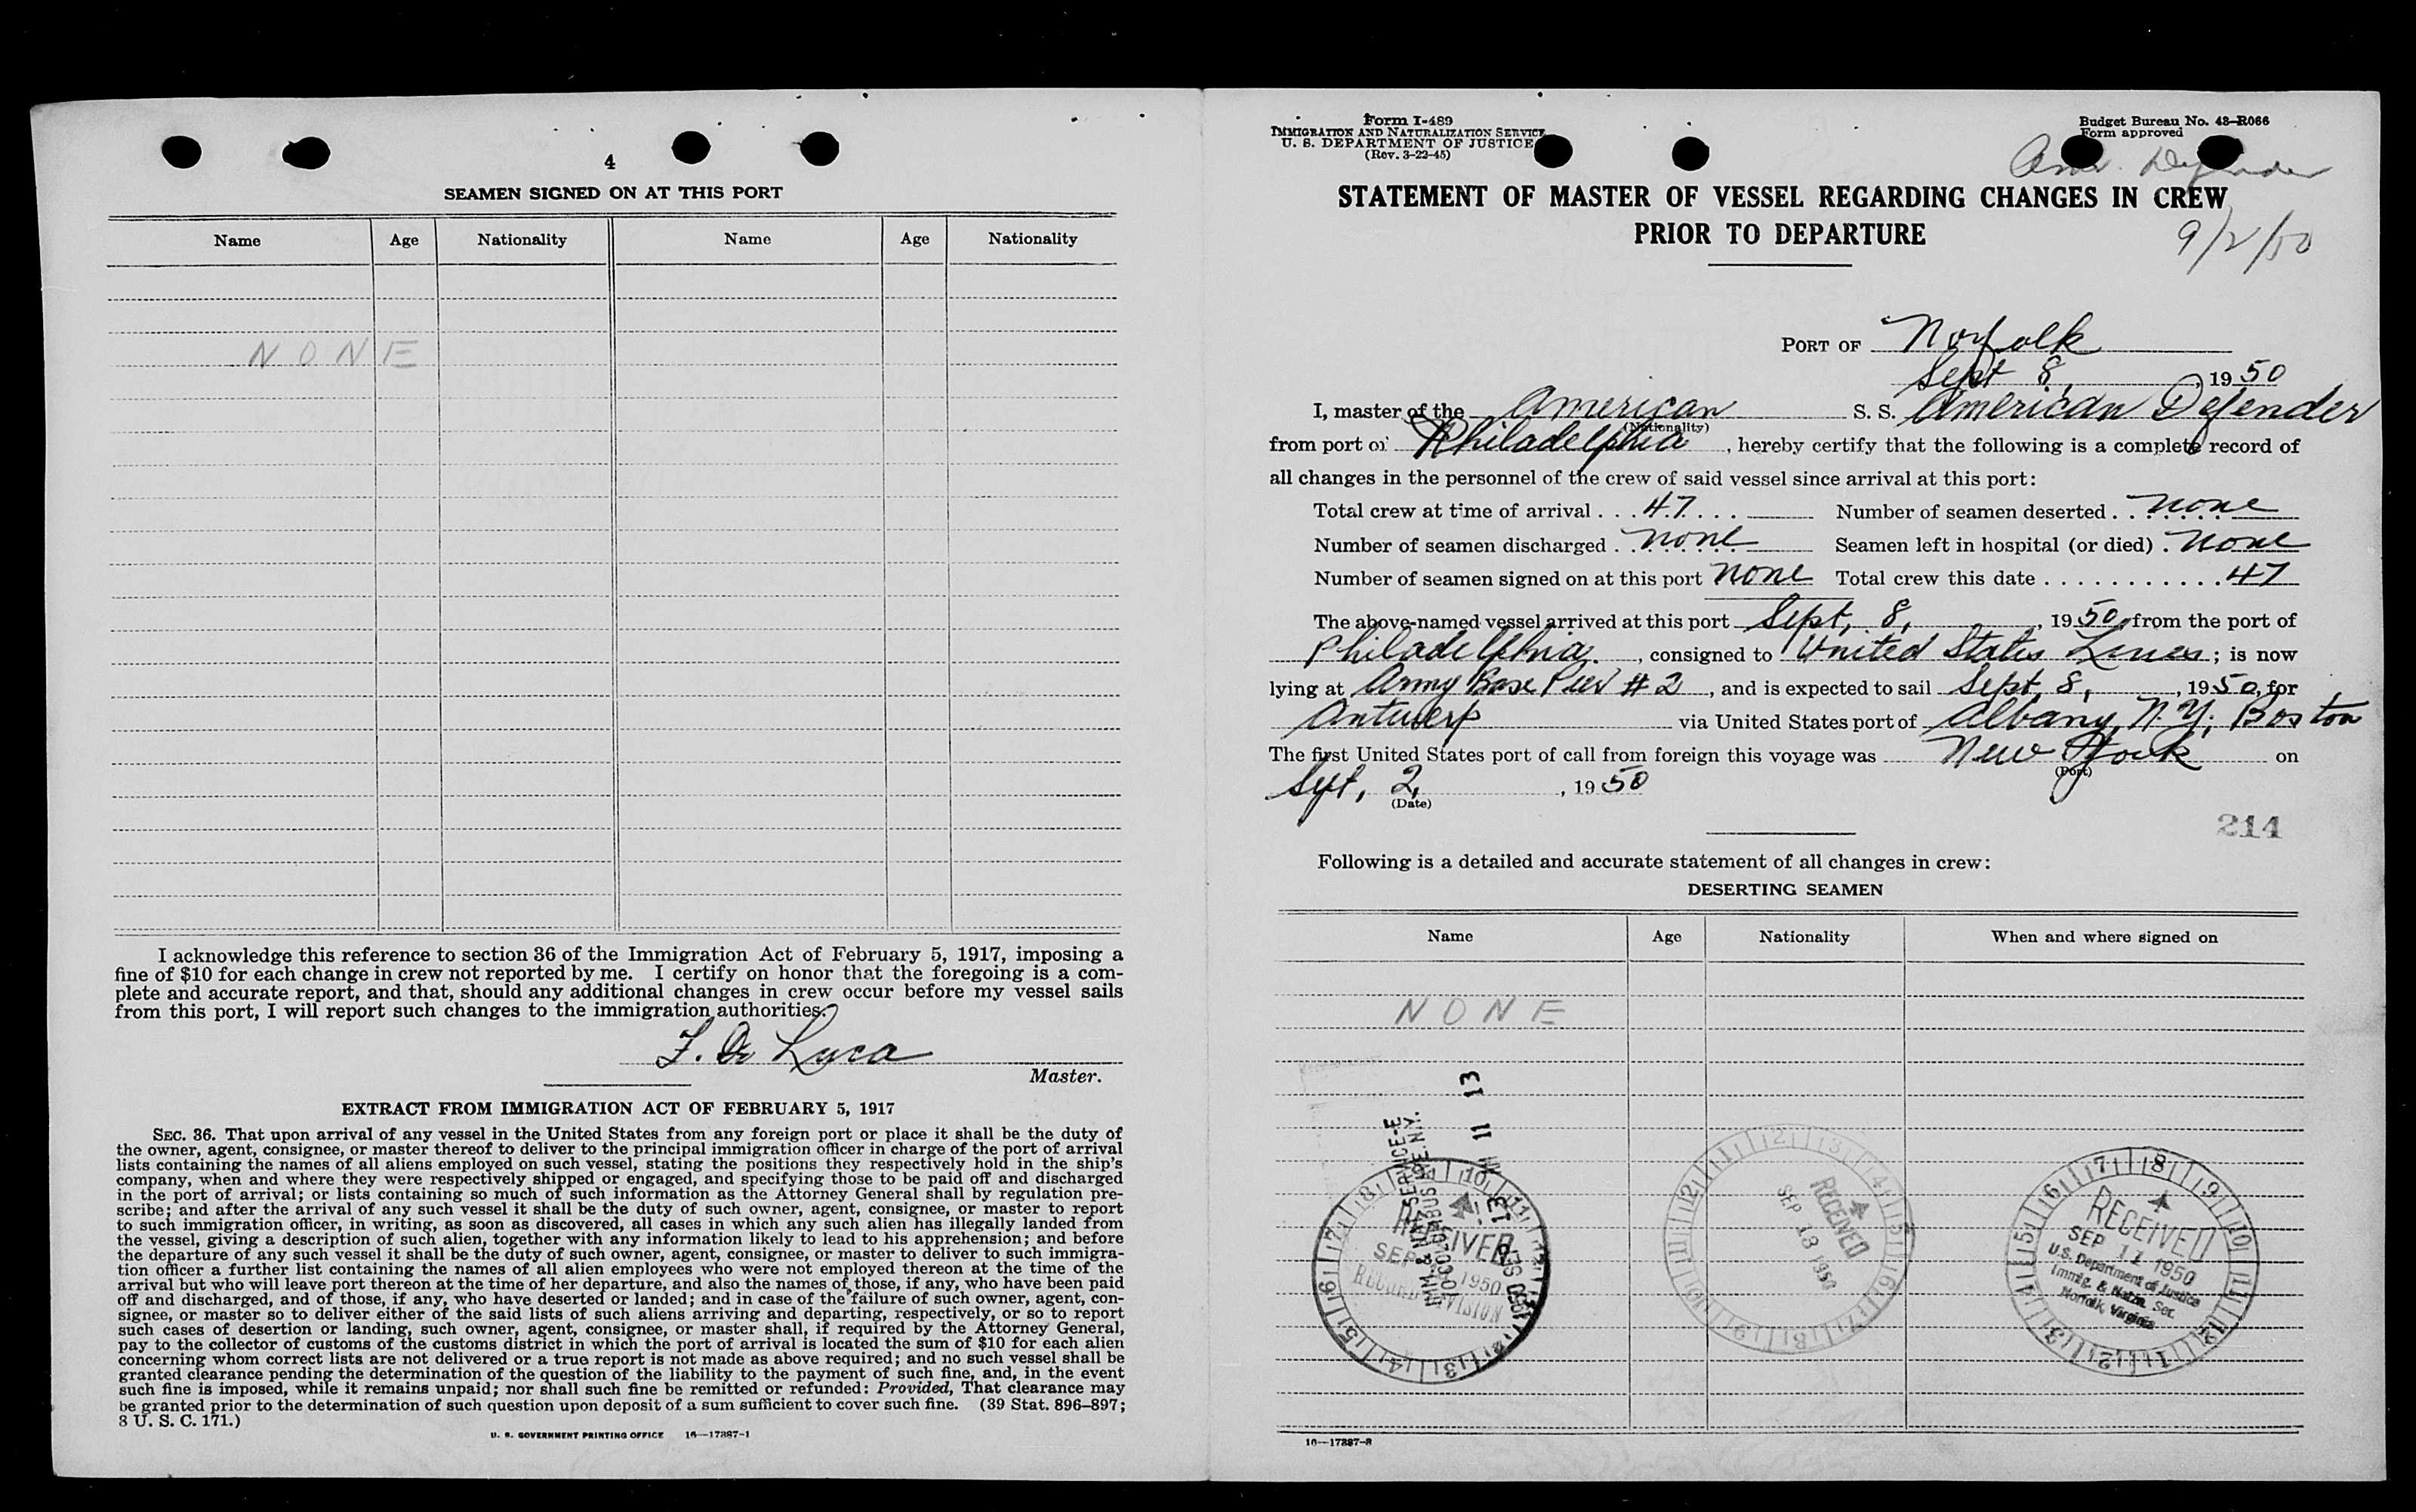 4
SEAMEN SIGNED ON AT THIS PORT
Name Age Nationality Name Age Nationality
NONE
I acknowledge this reference to section 36 of the Immigration Act of February 5, 1917, imposing a
fine of $10 for each change in crew not reported by me. I certify on honor that the foregoing is a com-
plete and accurate report, and that, should any additional changes in crew occur before my vessel sails
from this port, I will report such changes to the immigration authorities.
F. De Luca
Master.
EXTRACT FROM IMMIGRATION ACT OF FEBRUARY 5, 1917
SEC. 36. That upon arrival of any vessel in the United States from any foreign port or place it shall be the duty of
the owner, agent, consignee, or master thereof to deliver to the principal immigration officer in charge of the port of arrival
lists containing the names of all aliens employed on such vessel, stating the positions they respectively hold in the ship's
company, when and where they were respectively shipped or engaged, and specifying those to be paid off and discharged
in the port of arrival; or lists containing so much of such information as the Attorney General shall by regulation pre-
scribe; and after the arrival of any such vessel it shall be the duty of such owner, agent, consignee, or master to report
to such immigration officer, in writing, as soon as discovered, all cases in which any such alien has illegally landed from
the vessel, giving a description of such alien, together with any information likely to lead to his apprehension; and before
the departure of any such vessel it shall be the duty of such owner, agent, consignee, or master to deliver to such immigra-
tion officer a further list containing the names of all alien employees who were not employed thereon at the time of the
arrival but who will leave port thereon at the time of her departure, and also the names of those, if any, who have been paid
off and discharged, and of those, if any, who have deserted or landed; and in case of the failure of such owner, agent, con-
signee, or master so to deliver either of the said lists of such aliens arriving and departing, respectively, or so to report
such cases of desertion or landing, such owner, agent, consignee, or master shall, if required by the Attorney General,
pay to the collector of customs of the customs district in which the port of arrival is located the sum of $10 for each alien
concerning whom correct lists are not delivered or a true report is not made as above required; and no such vessel shall be
granted clearance pending the determination of the question of the liability to the payment of such fine, and, in the event
such fine is imposed, while it remains unpaid; nor shall such fine be remitted or refunded: Provided, That clearance may
be granted prior to the determination of such question upon deposit of a sum sufficient to cover such fine. (39 Stat. 896–897;
8 U. S. C. 171.)
U. S. GOVERNMENT PRINTING OFFICE 16—17387-1
Form I-489
IMMIGRATION AND NATURALIZATION SERVICE
U. S. DEPARTMENT OF JUSTICE
(Rev. 3-22-45)
Budget Bureau No. 43–R066
Form approved
Amer. Defender
STATEMENT OF MASTER OF VESSEL REGARDING CHANGES IN CREW
PRIOR TO DEPARTURE
9/2/50
PORT OF Norfolk
Sept 8, 1950
I, master of the American S. S. American Defender
(Nationality)
from port of Philadelphia, hereby certify that the following is a complete record of
all changes in the personnel of the crew of said vessel since arrival at this port:
Total crew at time of arrival . . . 47 . . . Number of seamen deserted . . none
Number of seamen discharged . . none Seamen left in hospital (or died) . none
Number of seamen signed on at this port none Total crew this date . . . . . . . . . . . 47
The above-named vessel arrived at this port Sept, 8, 1950, from the port of
Philadelphia., consigned to United States Lines; is now
lying at Army Base Pier #2, and is expected to sail Sept, 8, 1950, for
Antwerp via United States port of Albany, N.Y; Boston
The first United States port of call from foreign this voyage was New York on
(Port)
Sept, 2, 1950
(Date)
214
Following is a detailed and accurate statement of all changes in crew:
DESERTING SEAMEN
Name Age Nationality When and where signed on
NONE
RECEIVED
SEP 1950
RECORD DIVISION
1950 SEP 13 AM 11 13
70 COLUMBUS AVE. N.Y.
RECEIVED
SEP 13 1950
RECEIVED
SEP 11 1950
U.S. Department of Justice
Immig. & Natzn. Ser.
Norfolk, Virginia
16—17387-2